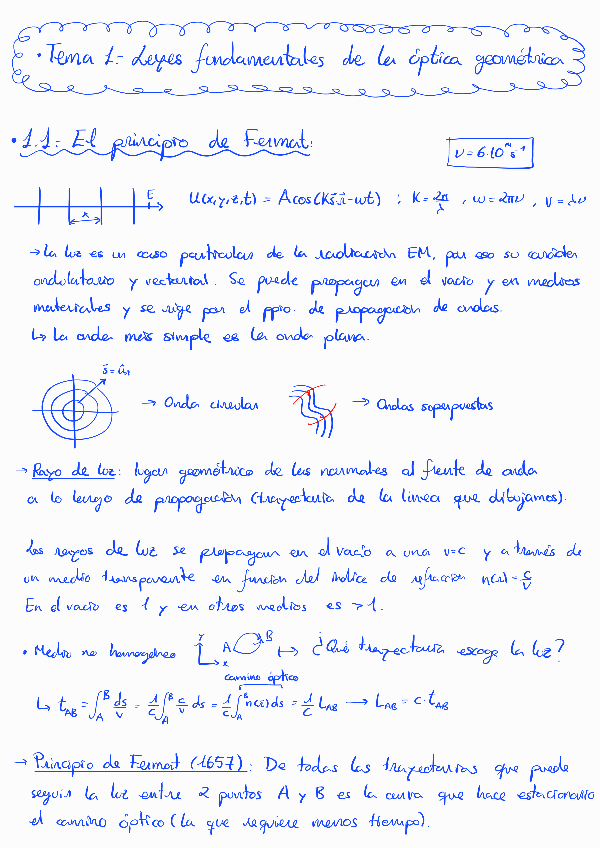 · Tema 1.- Leyes fundamentales de la óptica geométrica
· 1.1.- El principio de Fermat:
ν = 6·10¹⁴ s⁻¹
E
λ
U(x,y,z,t) = A cos(K s⃗·r⃗ - ωt) ; K = 2π/λ , ω = 2πν , v = λν
→ La luz es un caso particular de la radiación EM, por eso su carácter
ondulatorio y vectorial. Se puede propagar en el vacío y en medios
materiales y se rige por el ppio. de propagación de ondas.
↳ La onda más simple es la onda plana.
s⃗ = û_r
→ Onda circular
→ Ondas superpuestas
→ Rayo de luz: lugar geométrico de las normales al frente de onda
a lo largo de propagación (trayectoria de la línea que dibujamos).
Los rayos de luz se propagan en el vacío a una v=c y a través de
un medio transparente en función del índice de refracción n(r) = c/v
En el vacío es 1 y en otros medios es >1.
• Medio no homogéneo y x A B ↦ ¿Qué trayectoria escoge la luz?
camino óptico
↳ t_AB = ∫_A^B ds/v = 1/c ∫_A^B c/v ds = 1/c ∫_A^B n(r⃗) ds = 1/c L_AB → L_AB = c·t_AB
→ Principio de Fermat (1657): De todas las trayectorias que puede
seguir la luz entre 2 puntos A y B es la curva que hace estacionario
el camino óptico (la que requiere menos tiempo).